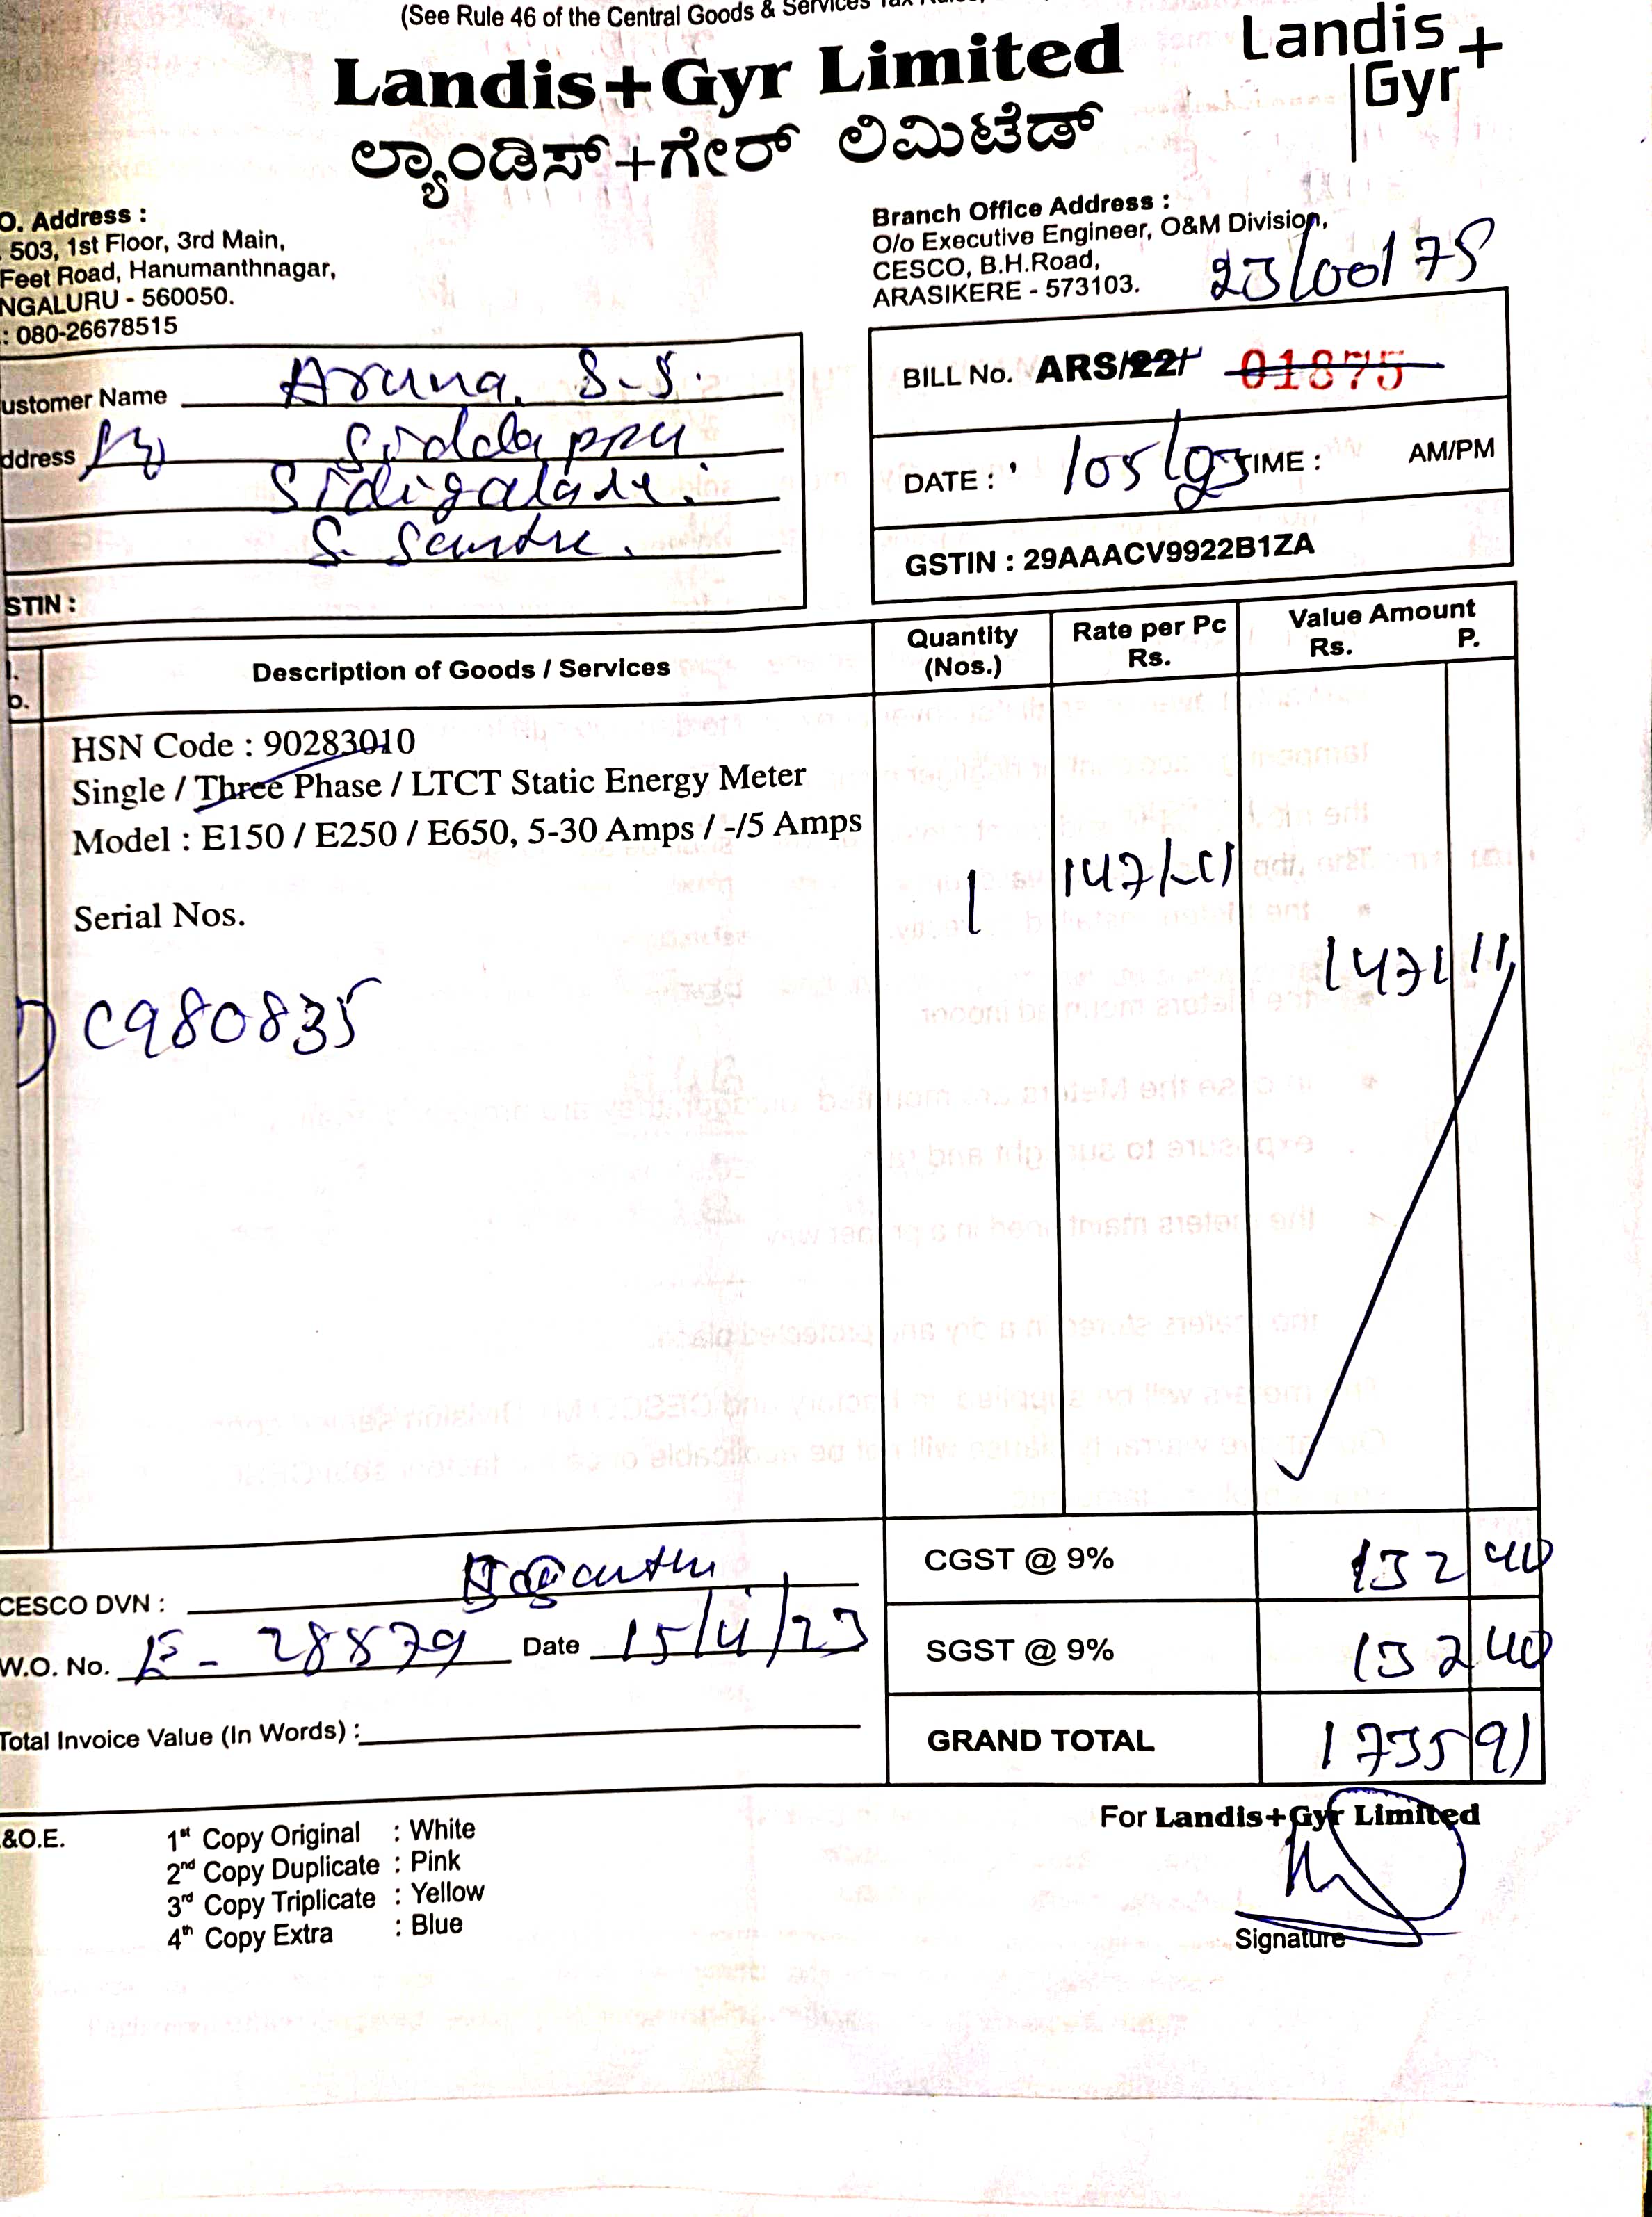 (See Rule 46 of the Central Goods & Services Tax
Landis+Gyr Limited
Landis+Gyr+
ಲ್ಯಾಂಡಿಸ್+ಗೇರ್ ಲಿಮಿಟೆಡ್
O. Address :
503, 1st Floor, 3rd Main,
Feet Road, Hanumanthnagar,
NGALURU - 560050.
: 080-26678515
Branch Office Address :
O/o Executive Engineer, O&M Division,
CESCO, B.H.Road,
ARASIKERE - 573103.
23/00175
ustomer Name Aruna. S.S.
ddress
Siddappa
S.
STIN :
BILL No. ARS/22/ 01875
DATE : /05/ TIME : AM/PM
GSTIN : 29AAACV9922B1ZA
Description of Goods / Services
Quantity (Nos.)
Rate per Pc Rs.
Value Amount
Rs. P.
HSN Code : 90283010
Single / Three Phase / LTCT Static Energy Meter
Model : E150 / E250 / E650, 5-30 Amps / -/5 Amps
1
Serial Nos.
1471 11
1) C980835
CGST @ 9% 132 40
CESCO DVN :
W.O. No. E- 28879 Date 15/4/23
SGST @ 9% 132 40
Total Invoice Value (In Words) :
GRAND TOTAL 1735 91
For Landis+Gyr Limited
&O.E.
1st Copy Original : White
2nd Copy Duplicate : Pink
3rd Copy Triplicate : Yellow
4th Copy Extra : Blue
Signature